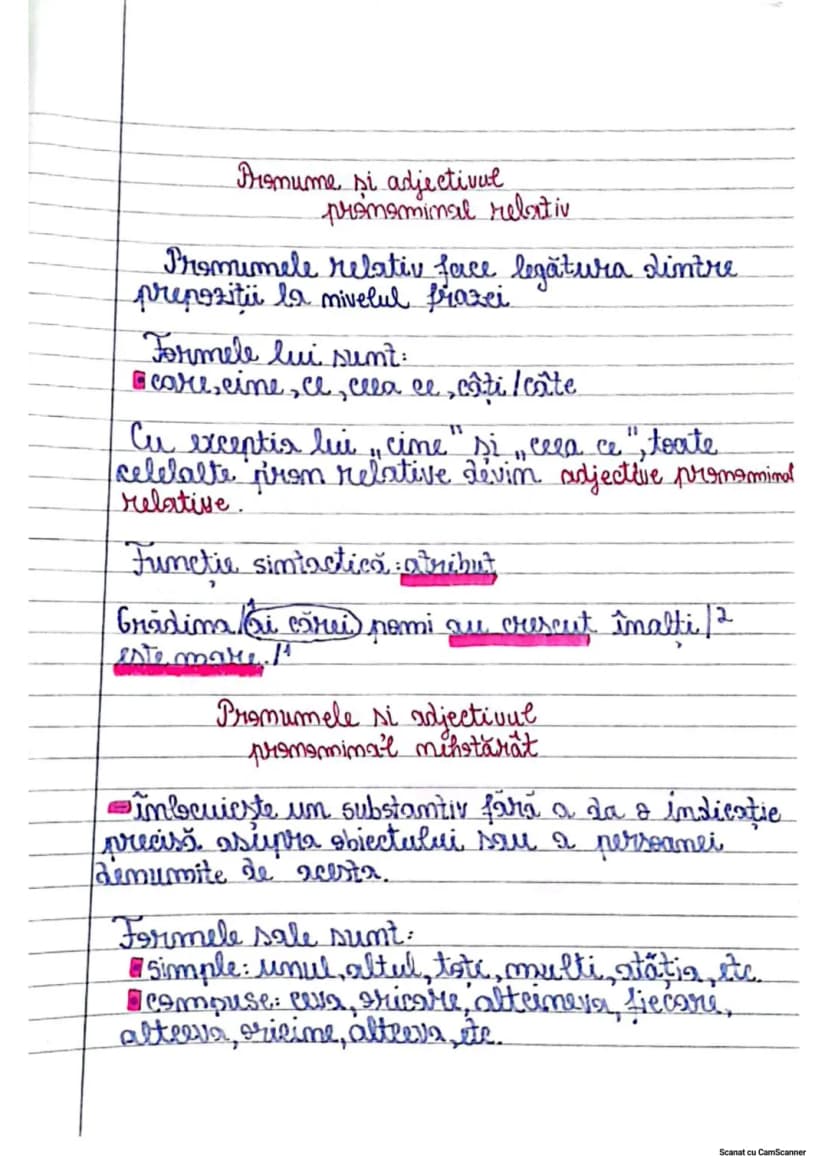 Pronume și adjectivul
pronominal relativ
Pronumele relativ face legătura dintre
prepoziții la nivelul frazei
Formele lui sunt:
care, cine, ce, ceea ce, câți/câte
Cu excepția lui „cine" și „ceea ce", toate
celelalte pron relative devin adjective pronominal
relative.
Funcție sintactică: atribut
Grădina/ai cărei pomi au crescut înalți/2
este mare./1
Pronumele si adjectivul
pronominal nehotărât
înlocuiește un substantiv fără a da o indicație
precisă asupra obiectului sau a persoanei
denumite de acesta.
Formele sale sunt:
simple: unul, altul, toți, mulți, atâția, etc.
compuse: ceva, oricare, altcineva, fiecare,
altceva, oricine, altceva, etc.
Scanat cu CamScanner